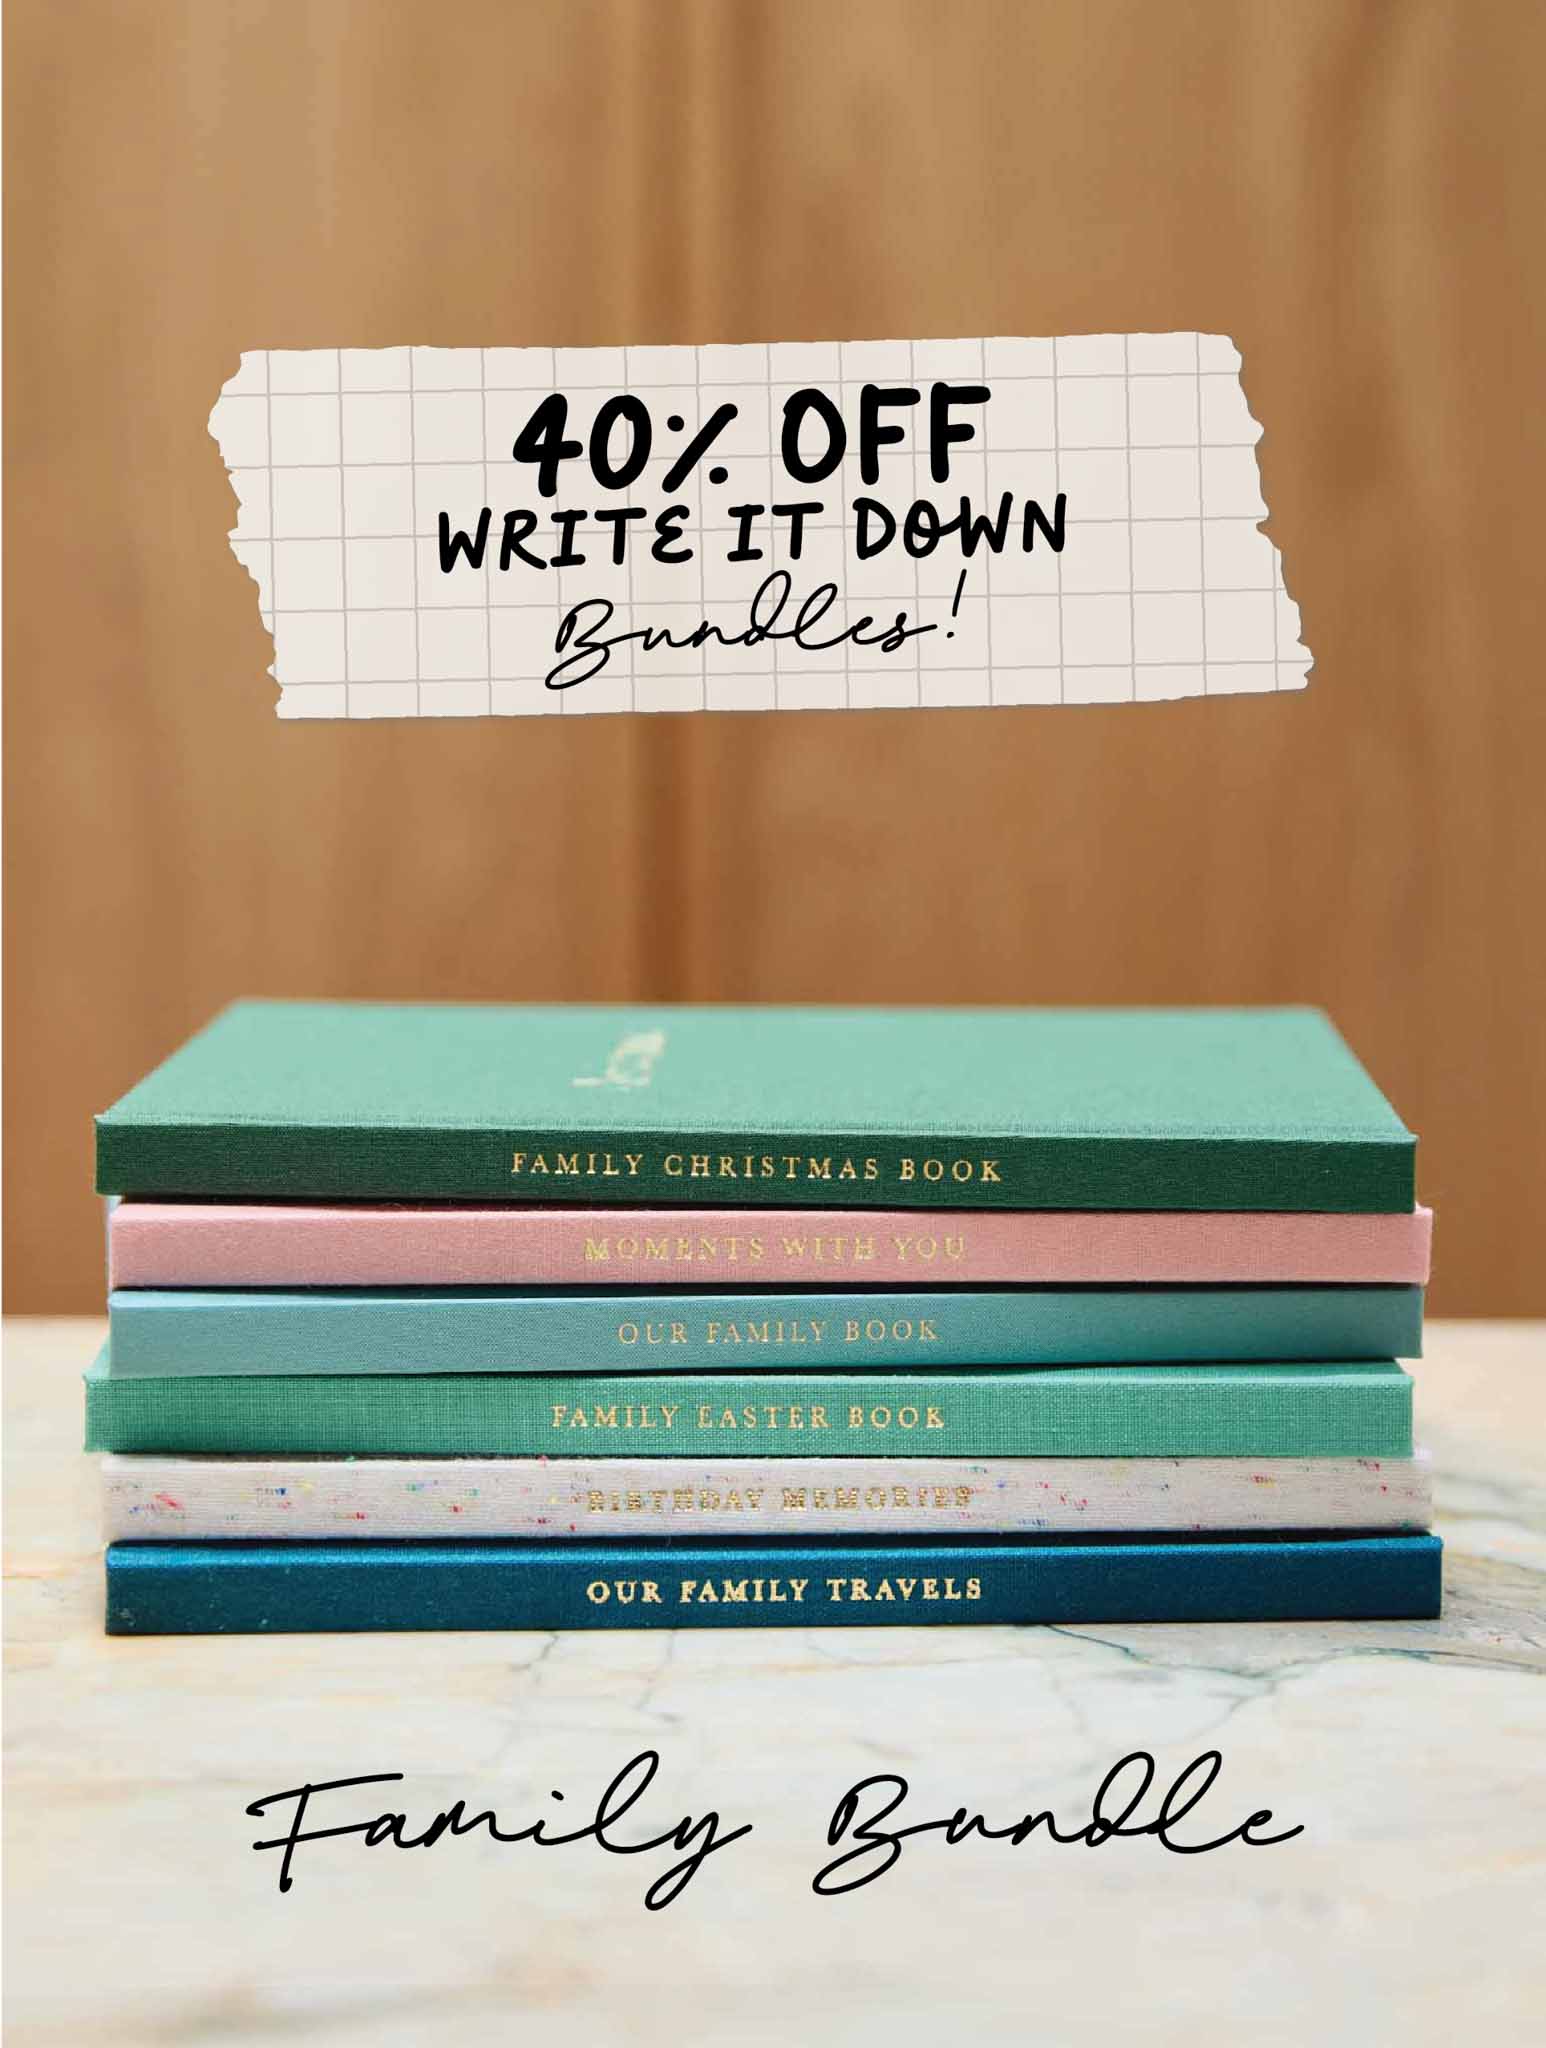 40% OFF
WRITE IT DOWN
Bundles!
FAMILY CHRISTMAS BOOK
MOMENTS WITH YOU
OUR FAMILY BOOK
FAMILY EASTER BOOK
BIRTHDAY MEMORIES
OUR FAMILY TRAVELS
Family Bundle